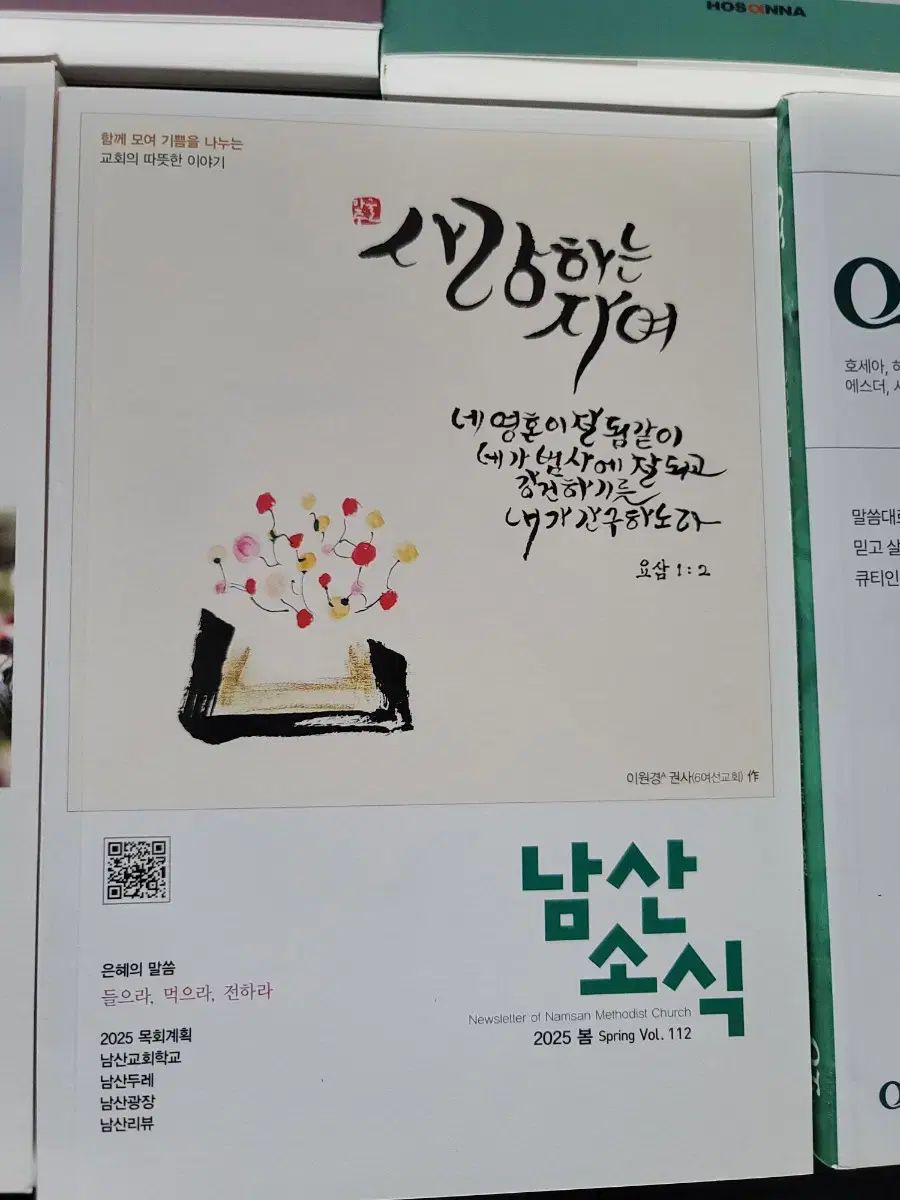 HOSANNA
함께 모여 기쁨을 나누는
교회의 따뜻한 이야기
사랑하는
자여
네 영혼이 잘 됨같이
네가 범사에 잘되고
강건하기를
내가 간구하노라
요삼 1:2
이원경ᴬ 권사(6여선교회) 作
남산
소식
Newsletter of Namsan Methodist Church
2025 봄 Spring Vol. 112
은혜의 말씀
들으라, 먹으라, 전하라
2025 목회계획
남산교회학교
남산두레
남산광장
남산리뷰
호세아,
에스더,
말씀대로
믿고
큐티인